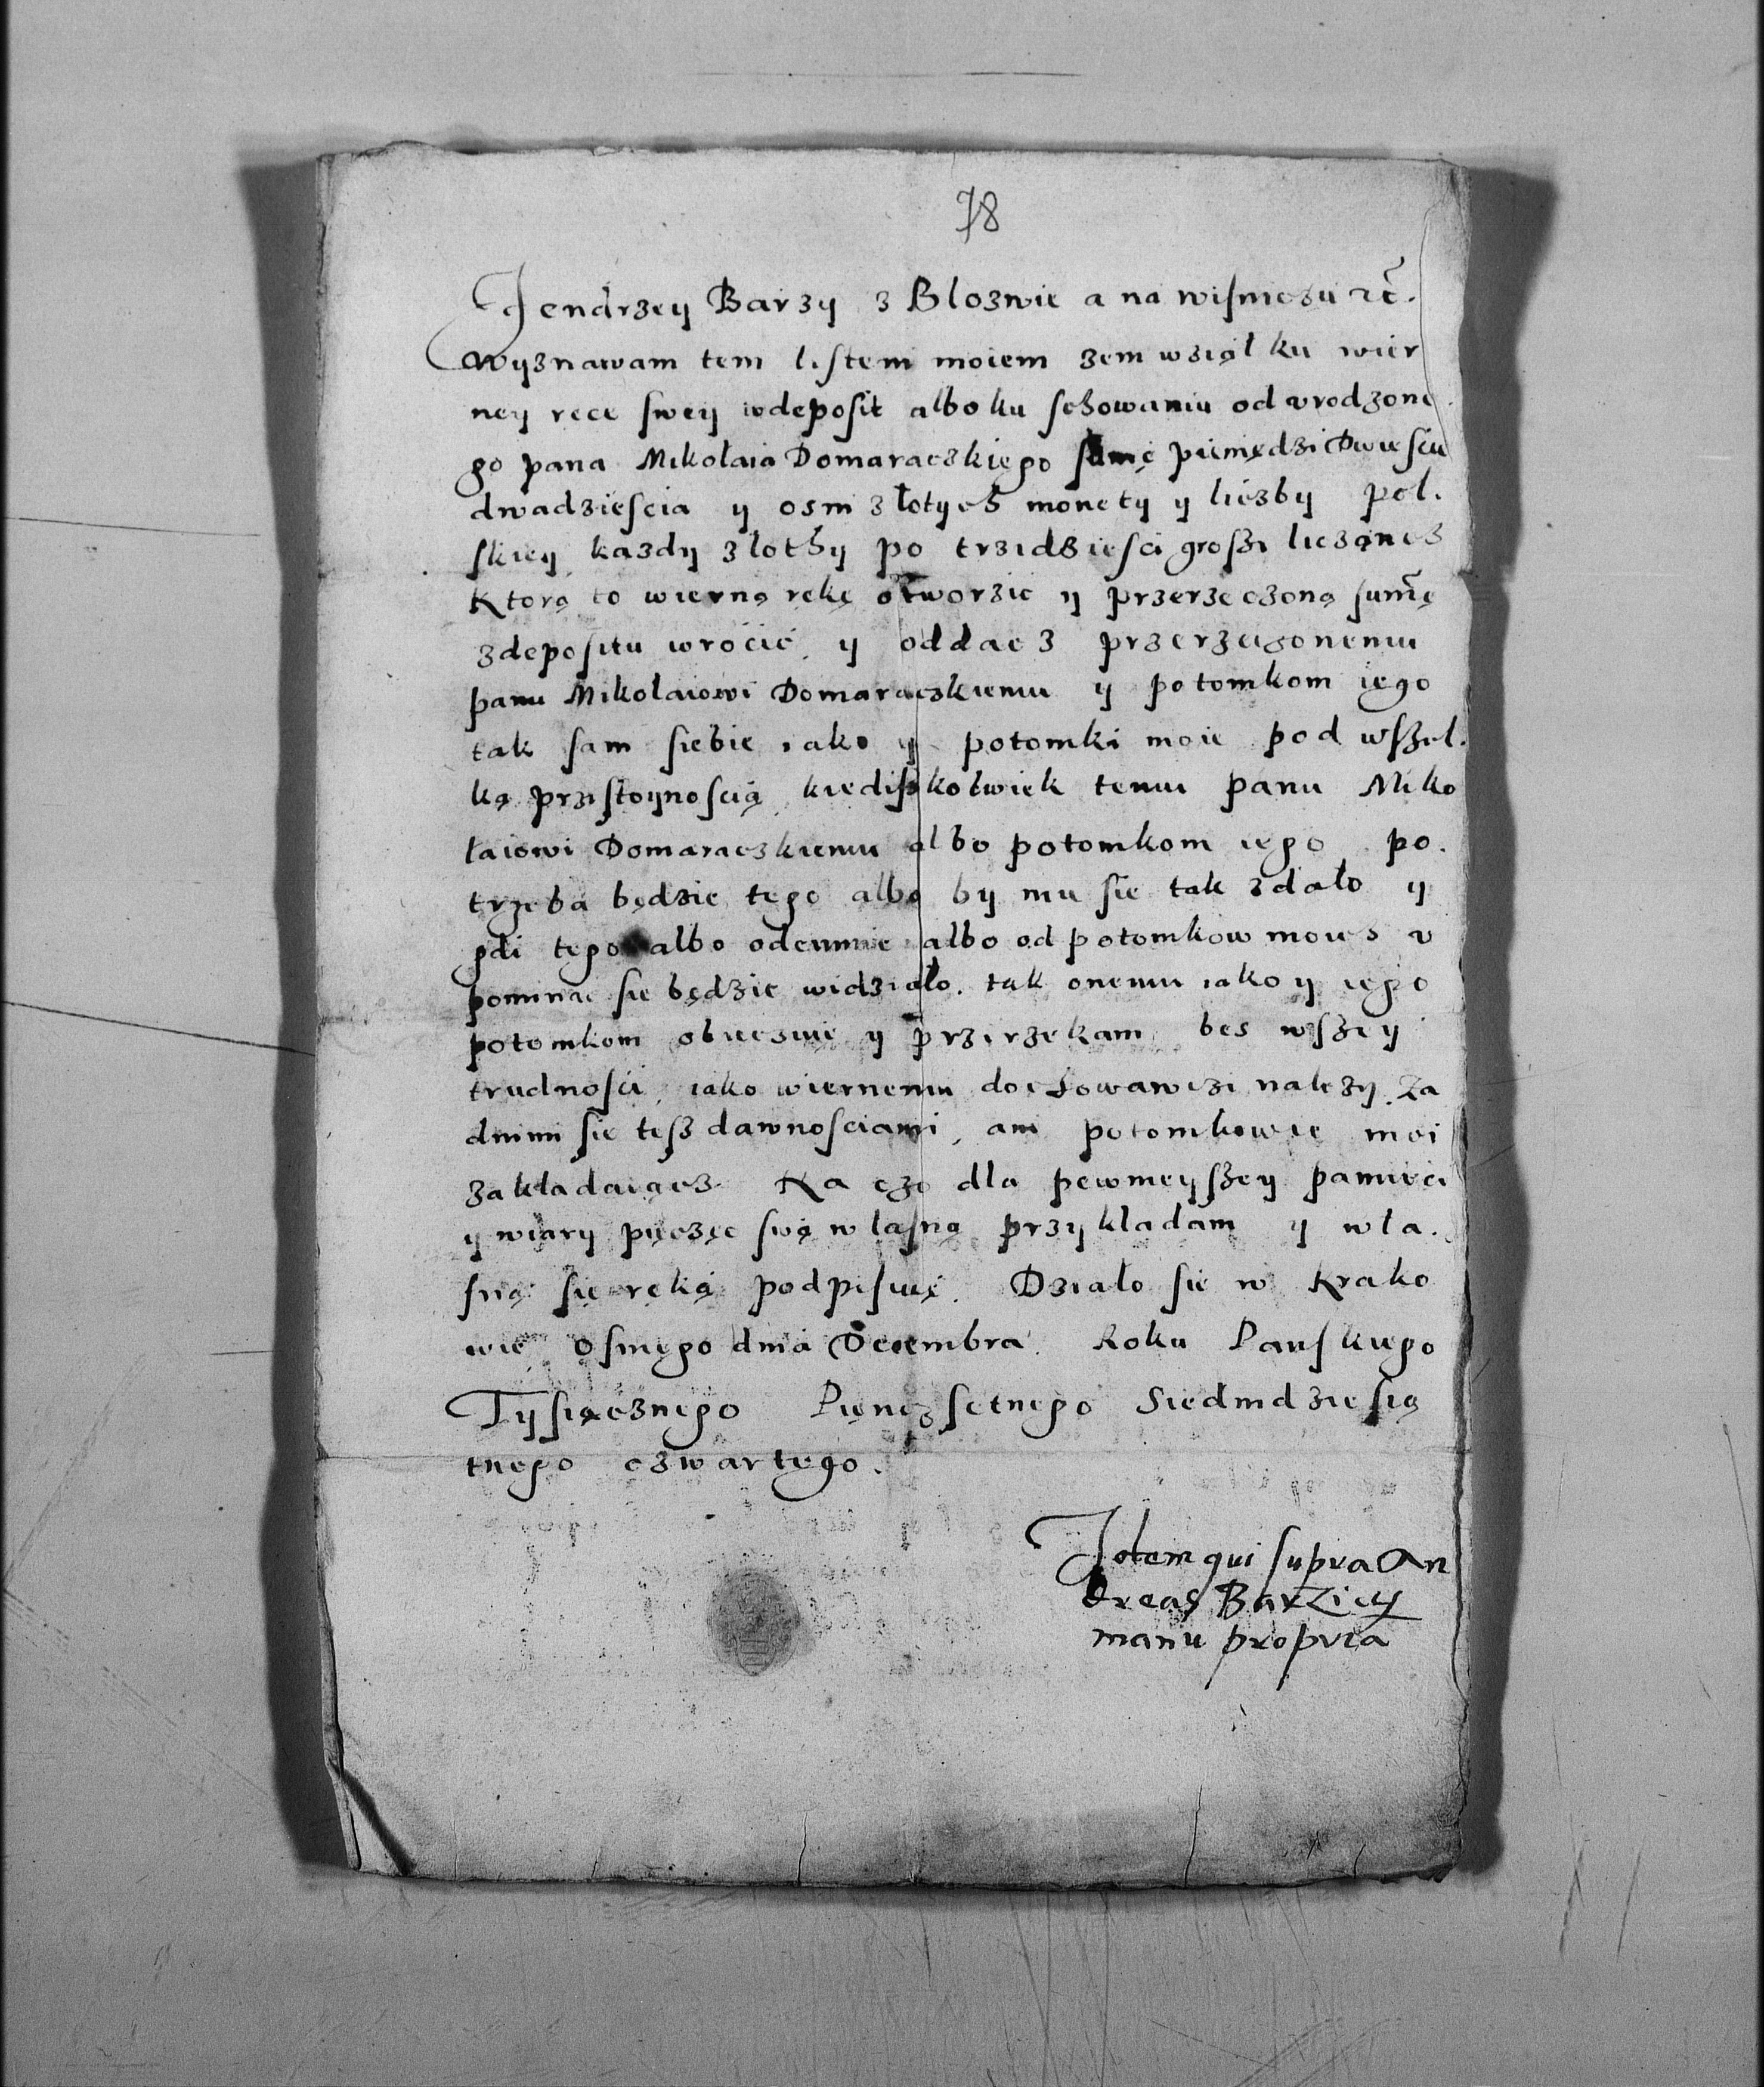 78
Jendrzey Barzy z Blozwie a na wisniczu etc.
wyznawam tem listem moiem zem wziął ku wier
ney rece swey wdeposit albo ku schowaniu od vrodzone
go pana Mikołaia Domaraczkiego sumę pieniędzi Dwiesciu
dwadziescia y osm złotych monety y liczby pol.
skiey kazdy złothy po trzidziesci groszi licząncz
Ktorą to wierną rękę otworzic y przerzeczoną sumę
zdepositu wrócić y oddacz przerzeczonemu
panu Mikolaiowi Domaraczkiemu y potomkom iego
tak sam siebie iako y potomki moie pod wszel.
ką przistoynoscią kiediszkolwiek temu panu Miko
łaiowi Domaraczkiemu albo potomkom iego po.
trzeba będzie tego albo by mu sie tak zdało y
gdi tego albo odemnie albo od potomkow moich v
pominac sie będzie widziało. tak onemu iako y iego
potomkom obieczuie y przirzekam bes wszey
trudnosci iako wiernemu dochowawczi nalezy. Za
dnimi sie tesz dawnosciami, ani potomkowie moi
zakładaiącz Na czo dla pewnieyszey pamieci
y wiary pięczęc swą własną przykładam y wła.
sną się ręką podpisuię. Działo sie w Krako
wie Osmego dnia Decembra Roku Panskiego
Tysiącznego Pięnczsetnego Siedmdziesią
tnego czwartego.
Idem qui supra An
dreas Barziey
manu propria